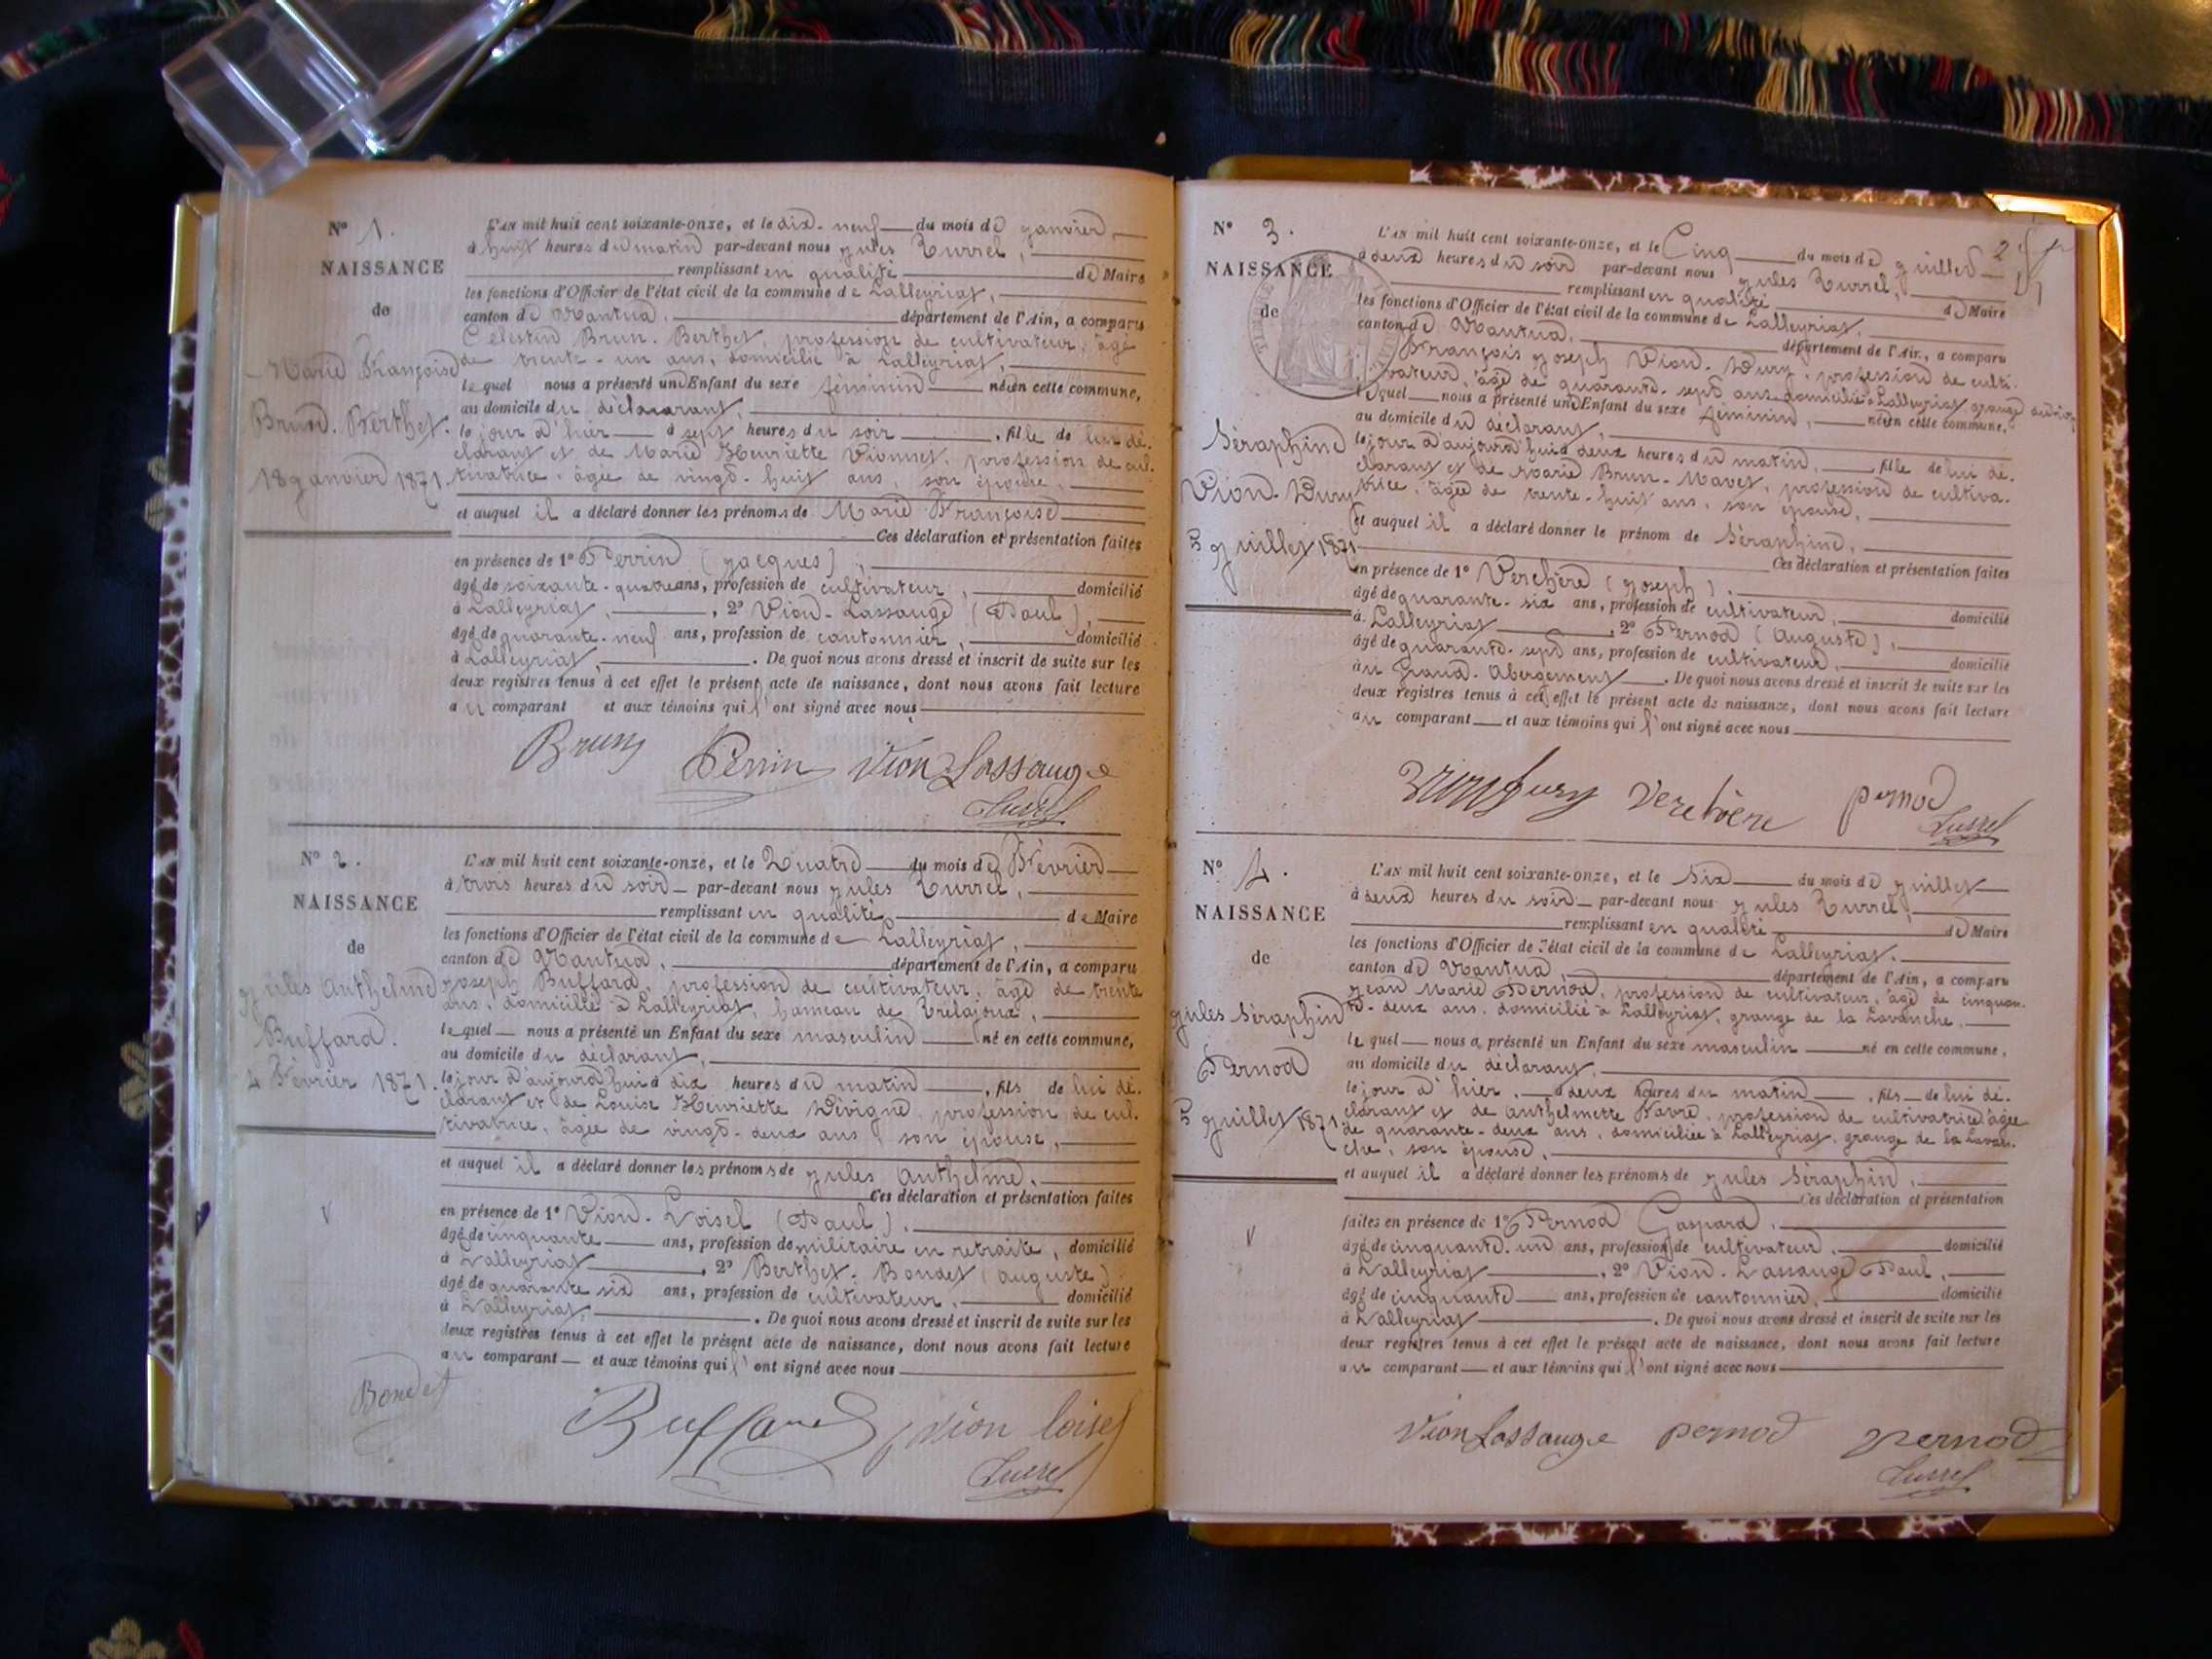 N° 1.
NAISSANCE
de
Marie Françoise
Brun-Berthet.
18 janvier 1871
L'AN mil huit cent soixante-onze, et le dix-neuf du mois de janvier
à huit heures du matin par-devant nous Jules Turrel,
remplissant en qualité de Maire
les fonctions d'Officier de l'état civil de la commune de Lalleyriat,
canton de Nantua, département de l'Ain, a comparu
Célestin Brun-Berthet, profession de cultivateur, âgé
de trente-un ans, domicilié à Lalleyriat,
lequel nous a présenté un Enfant du sexe féminin né en cette commune,
au domicile du déclarant,
le jour d'hier à sept heures du soir, fille de lui dé-
clarant et de Marie Henriette Vionnet, profession de cul-
tivatrice, âgée de vingt-huit ans, son épouse,
et auquel il a déclaré donner les prénoms de Marie Françoise
Ces déclaration et présentation faites
en présence de 1° Perrin (Jacques),
âgé de soixante-quatre ans, profession de cultivateur, domicilié
à Lalleyriat, 2° Vion-Lassauge (Paul),
âgé de quarante-neuf ans, profession de cantonnier, domicilié
à Lalleyriat, . De quoi nous avons dressé et inscrit de suite sur les
deux registres tenus à cet effet le présent acte de naissance, dont nous avons fait lecture
au comparant et aux témoins qui l'ont signé avec nous
Brun Perrin Vion Lassauge
Turrel
N° 2.
NAISSANCE
de
Jules Anthelme
Buffard.
4 Février 1871.
L'AN mil huit cent soixante-onze, et le Quatre du mois de Février
à trois heures du soir par-devant nous Jules Turrel,
remplissant en qualité de Maire
les fonctions d'Officier de l'état civil de la commune de Lalleyriat,
canton de Nantua, département de l'Ain, a comparu
Joseph Buffard, profession de cultivateur, âgé de trente
ans, domicilié à Lalleyriat, hameau de Trélajoux,
lequel nous a présenté un Enfant du sexe masculin né en cette commune,
au domicile du déclarant,
le jour d'aujourd'hui à dix heures du matin, fils de lui dé-
clarant et de Louise Henriette Lévigne, profession de cul-
tivatrice, âgée de vingt-deux ans, son épouse,
et auquel il a déclaré donner les prénoms de Jules Anthelme.
Ces déclaration et présentation faites
en présence de 1° Vion-Loisel (Paul),
âgé de cinquante ans, profession de militaire en retraite, domicilié
à Lalleyriat, 2° Berthet-Bondet (Auguste)
âgé de quarante six ans, profession de cultivateur, domicilié
à Lalleyriat, . De quoi nous avons dressé et inscrit de suite sur les
deux registres tenus à cet effet le présent acte de naissance, dont nous avons fait lecture
au comparant et aux témoins qui l'ont signé avec nous
Bondet Buffard Vion Loisel
Turrel
2
N° 3.
NAISSANCE
de
Séraphine
Vion-Dury
5 Juillet 1871
L'AN mil huit cent soixante-onze, et le Cinq du mois de Juillet
à deux heures du soir par-devant nous Jules Turrel,
remplissant en qualité de Maire
les fonctions d'Officier de l'état civil de la commune de Lalleyriat,
canton de Nantua, département de l'Ain, a comparu
François Joseph Vion-Dury, profession de culti-
vateur, âgé de quarante-sept ans domicilié à Lalleyriat grange
lequel nous a présenté un Enfant du sexe féminin, né en cette commune,
au domicile du déclarant,
le jour d'aujourd'hui à deux heures du matin, fille de lui dé-
clarant et de Marie Brun-Mavet, profession de cultiva-
trice, âgée de trente-huit ans, son épouse,
et auquel il a déclaré donner le prénom de Séraphine,
Ces déclaration et présentation faites
en présence de 1° Verchère (Joseph),
âgé de quarante-six ans, profession de cultivateur, domicilié
à Lalleyriat, 2° Pernod (Auguste),
âgé de quarante-sept ans, profession de cultivateur, domicilié
au Grand-Abergement. De quoi nous avons dressé et inscrit de suite sur les
deux registres tenus à cet effet le présent acte de naissance, dont nous avons fait lecture
au comparant et aux témoins qui l'ont signé avec nous
Verchère Pernod
Turrel
N° 4.
NAISSANCE
de
Jules Séraphin
Pernod
5 Juillet 1871
L'AN mil huit cent soixante-onze, et le Six du mois de Juillet
à deux heures du soir par-devant nous Jules Turrel,
remplissant en qualité de Maire
les fonctions d'Officier de l'état civil de la commune de Lalleyriat,
canton de Nantua, département de l'Ain, a comparu
Jean Marie Pernod, profession de cultivateur, âgé de cinquan-
te-deux ans, domicilié à Lalleyriat, grange de la Lavanche,
lequel nous a présenté un Enfant du sexe masculin né en cette commune,
au domicile du déclarant,
le jour d'hier, à deux heures du matin, fils de lui dé-
clarant et de Anthelmette Favre, profession de cultivatrice, âgée
de quarante-deux ans, domiciliée à Lalleyriat, grange de la Lavan-
che, son épouse,
et auquel il a déclaré donner les prénoms de Jules Séraphin,
Ces déclaration et présentation
faites en présence de 1° Pernod Gaspard,
âgé de cinquante-un ans, profession de cultivateur, domicilié
à Lalleyriat, 2° Vion-Lassauge Paul,
âgé de cinquante ans, profession de cantonnier, domicilié
à Lalleyriat. De quoi nous avons dressé et inscrit de suite sur les
deux registres tenus à cet effet le présent acte de naissance, dont nous avons fait lecture
au comparant et aux témoins qui l'ont signé avec nous
Vion Lassauge pernod pernod
Turrel